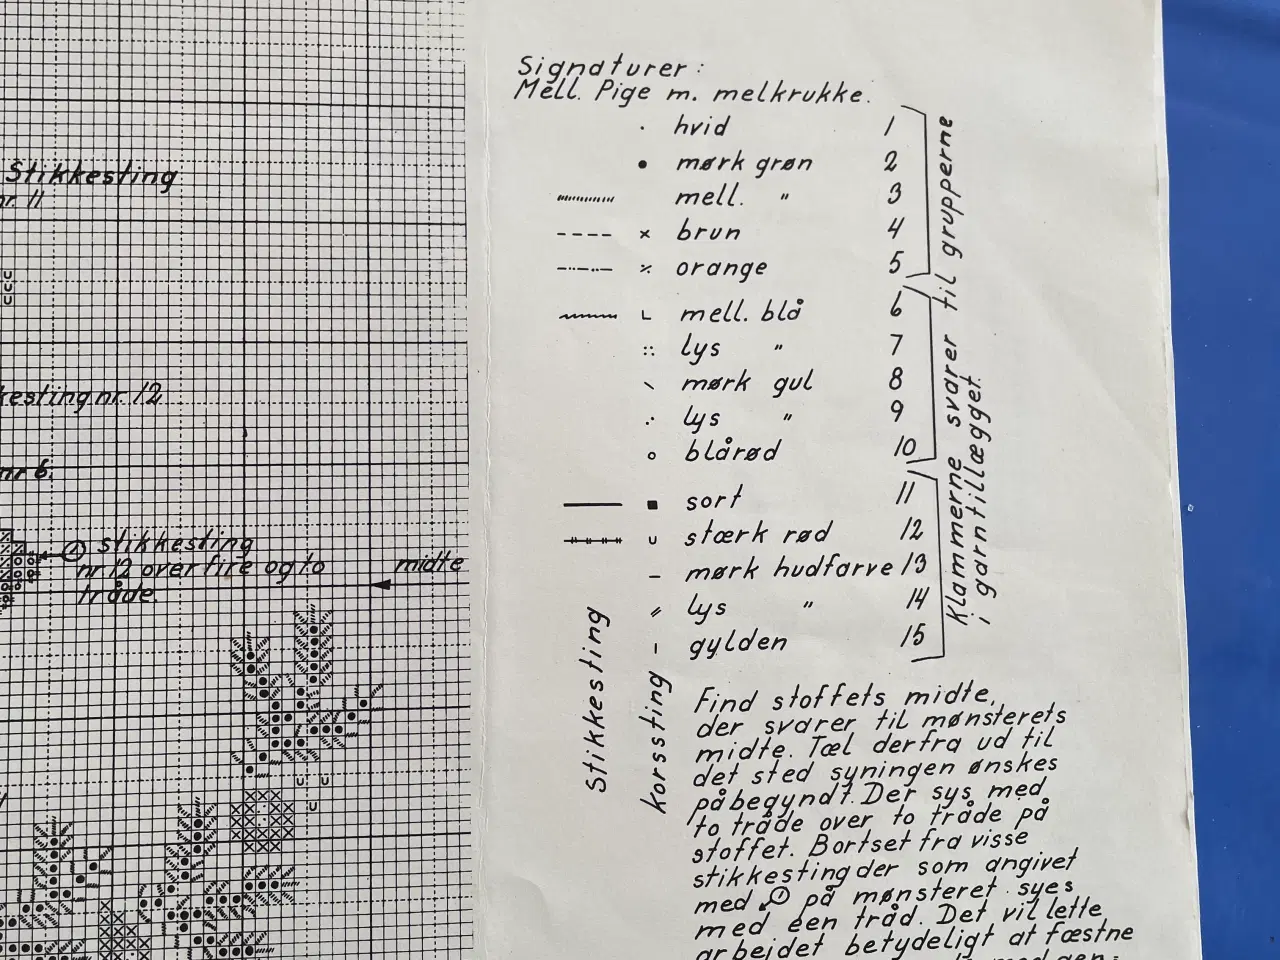 Stikkesting
nr. 11
nr. 12
nr 6.
stikkesting
nr 12 over fire og to
tråde.
midte
Signaturer:
Mell. Pige m. melkrukke.
· hvid 1
● mørk grøn 2
mell. " 3
x brun 4
orange 5
mell. blå 6
lys " 7
mørk gul 8
lys " 9
blårød 10
sort 11
stærk rød 12
mørk hudfarve 13
lys " 14
gylden 15
Stikkesting
Korssting
Klammerne svarer til grupperne
i garntillægget.
Find stoffets midte,
der svarer til mønsterets
midte. Tæl derfra ud til
det sted syningen ønskes
påbegyndt. Der sys med
to tråde over to tråde på
stoffet. Bortset fra visse
stikkesting der som angivet
med på mønsteret syes
med een tråd. Det vil lette
arbejdet betydeligt at fæstne